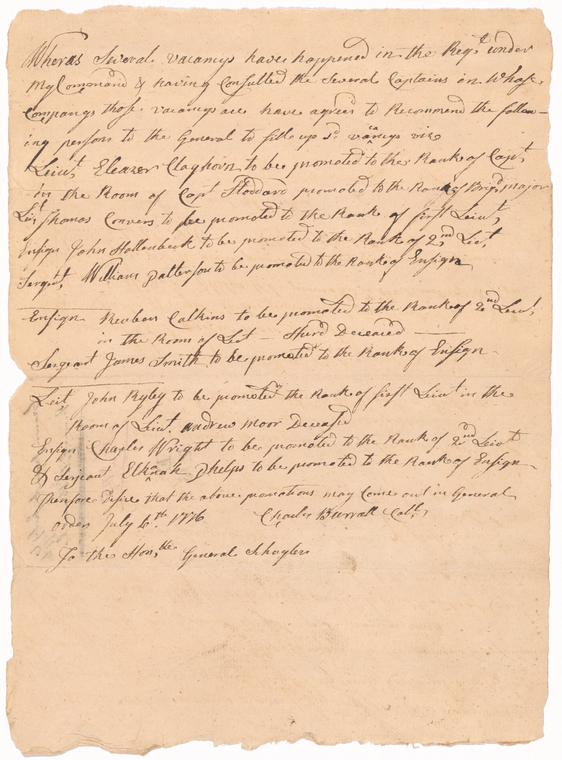 Wheras Several vacancys have happened in the Regt under
My Command & having Consulted the Several Captains in Whose
Companys those vacancys are have agreed to Recommend the follow-
ing persons to the General to fill up sd vacancys viz
Lieut Eleazer Claghorn to be promoted to the Rank of Capt
in the Room of Capt Stoddard promoted to the Rank of Brigd major
Lit Thomas Convers to be promoted to the Rank of first Lieut
Ensign John Hollenbeck to be promoted to the Rank of 2nd Liet
Sergnt William Patterson to be promoted to the Rank of Ensign
Ensign Reuben Calkins to be promoted to the Rank of 2nd Lieut
in the Room of Lit — Hurd Deceased —
Sergeant James Smith to be promoted to the Rank of Ensign
Leit John Ryley to be promoted to the Rank of first Lieut in the
Room of Lieut. andrew Moor Deceased
Ensign Charles Wright to be promoted to the Rank of 2nd Lieut
& Sergeant Elkanah Phelps to be promoted to the Rank of Ensign
therefore Desire that the above promotions may Come out in General
orders July 6th 1776 Charles Burrall Coll
To the Honble General Schuyler